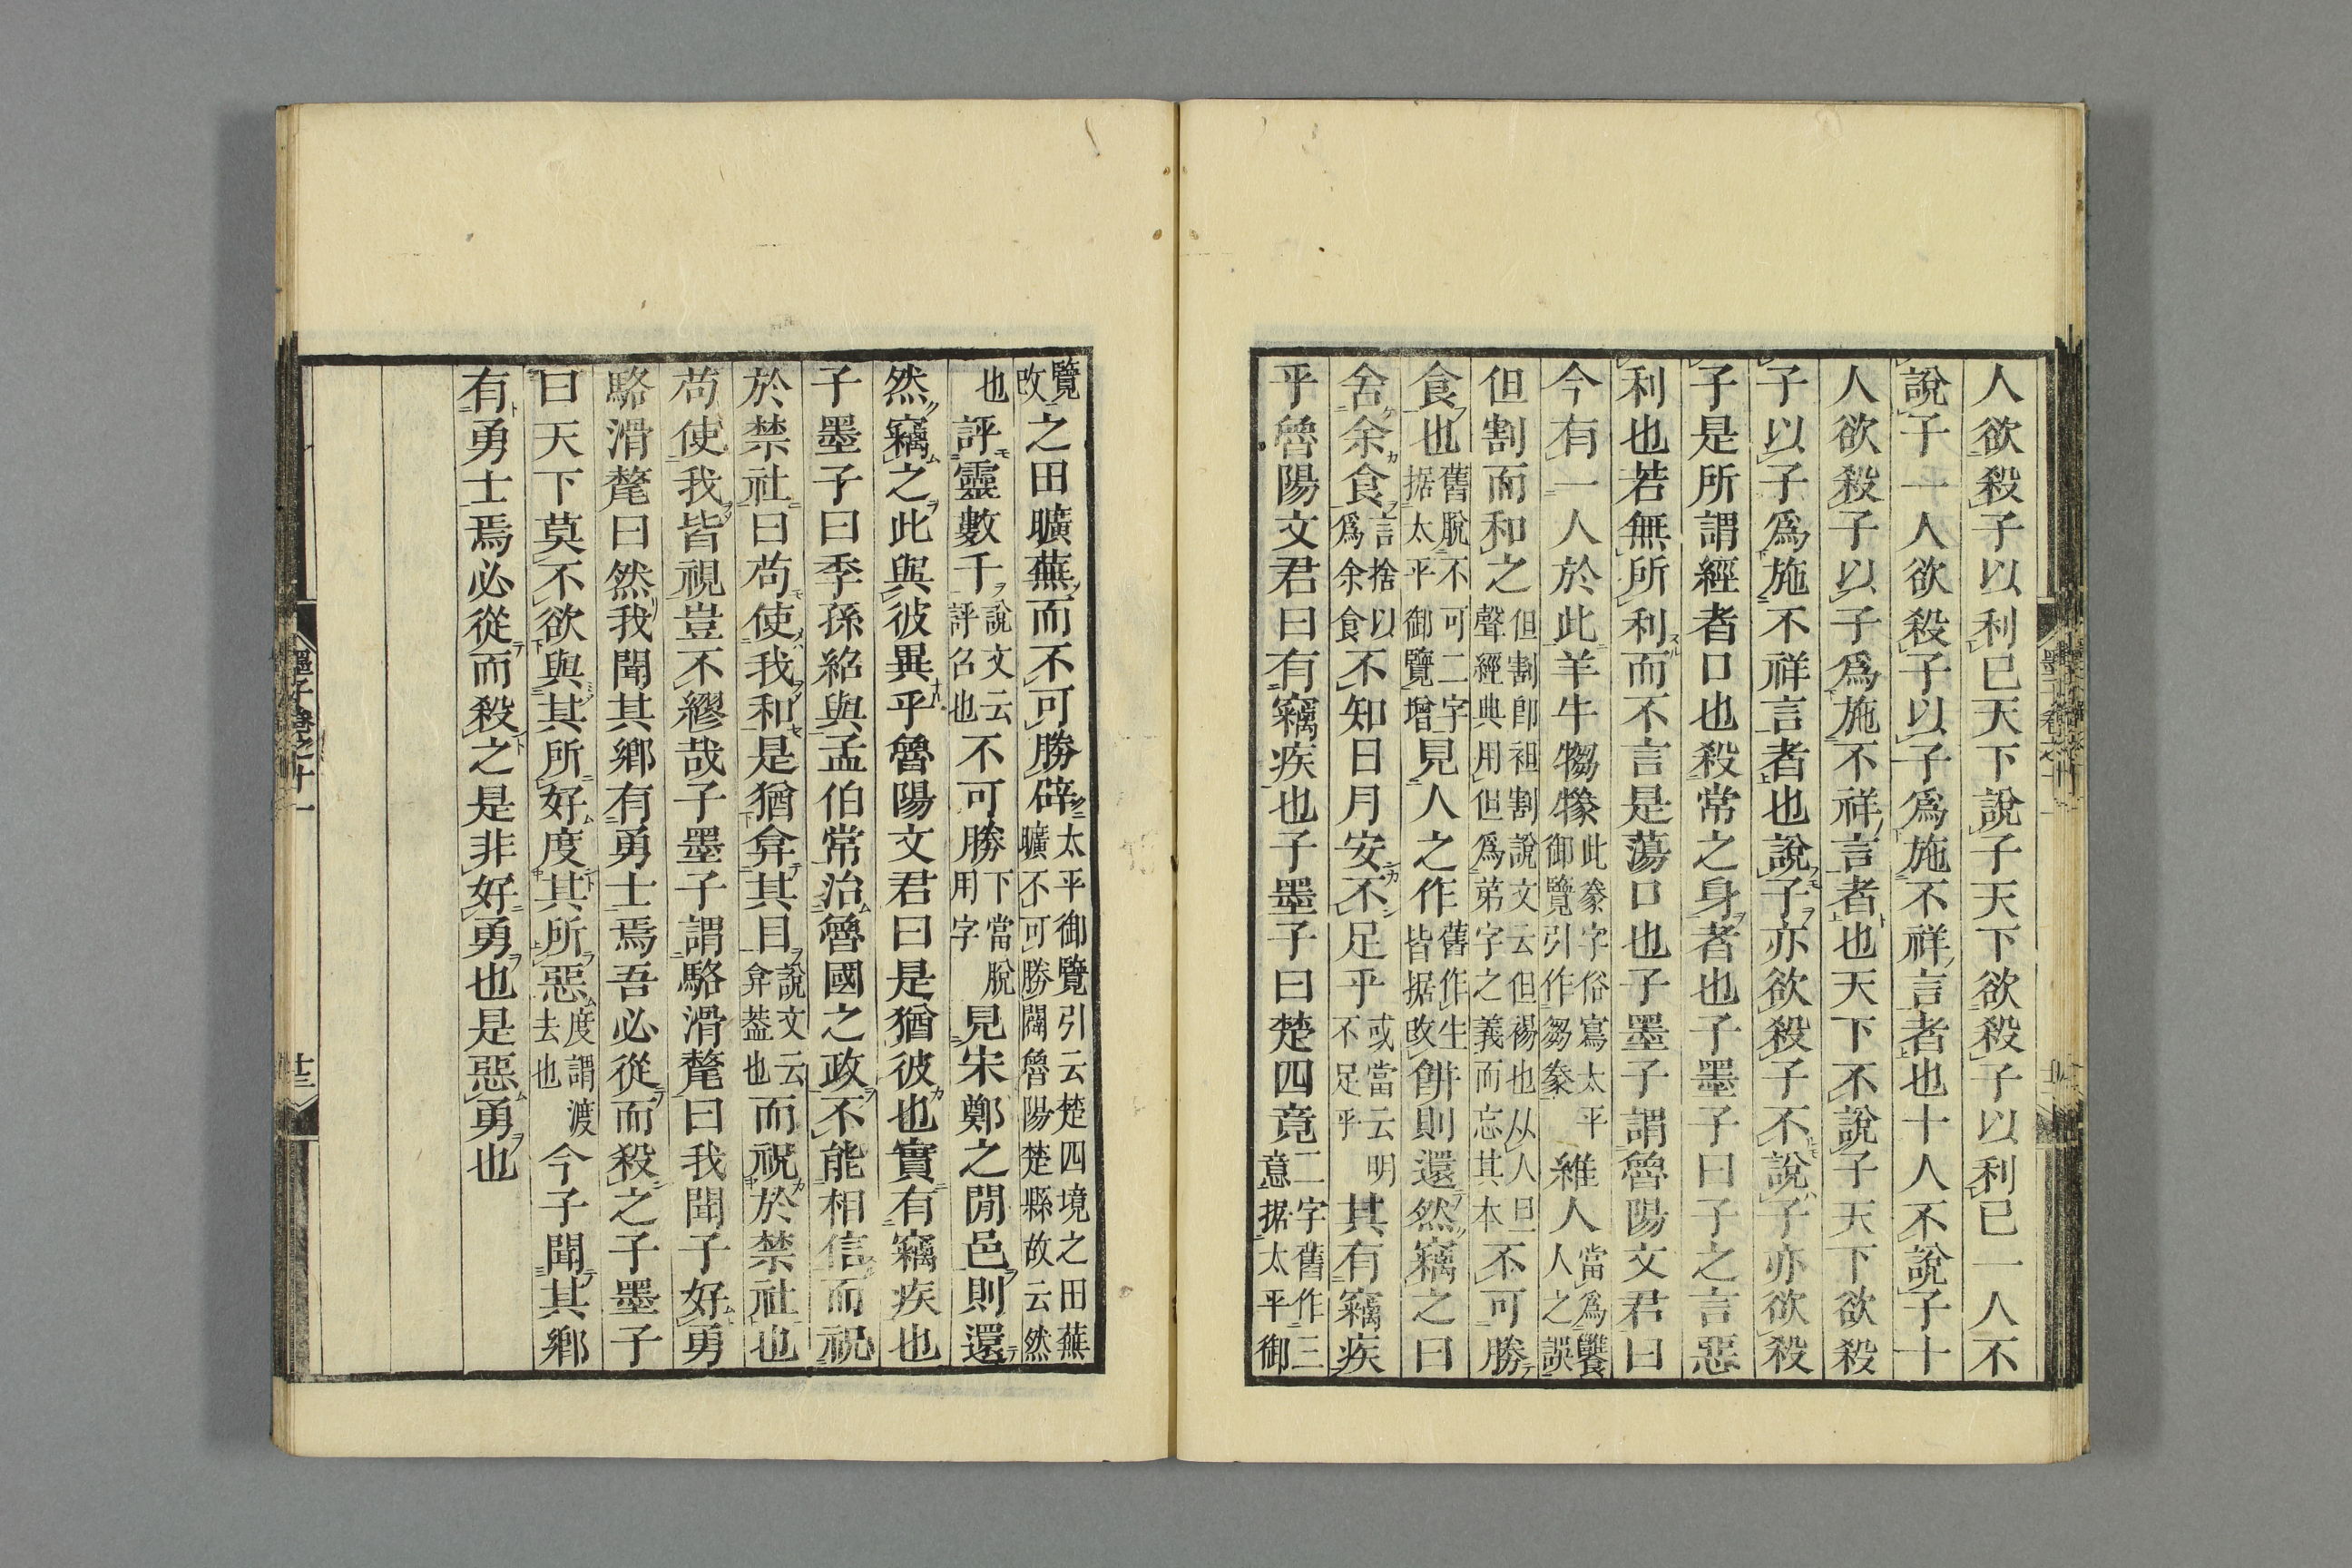 人欲殺子以利已天下說子天下欲殺子以利已一人不
說子一人欲殺子以子爲施不祥言者也十人不說子十
人欲殺子以子爲施不祥言者也天下不說子天下欲殺
子以子爲施不祥言者也說子亦欲殺子不說子亦欲殺
子是所謂經者口也殺常之身者也子墨子曰子之言惡
利也若無所利而不言是蕩口也子墨子謂魯陽文君曰
今有一人於此羊牛犓㹖此豢字俗寫太平御覽引作芻豢維人當爲饔人之誤
但割而和之但割卽袒割說文云但裼也从人旦聲經典用但爲弟字之義而忘其本不可勝
食也舊脫不可二字据太平御覽增見人之作舊作生皆据改餅則還然竊之曰
舍余食言捨以爲余食不知日月安不足乎或當云明不足乎其有竊疾
乎魯陽文君曰有竊疾也子墨子曰楚四竟二字舊作三意据太平御
覽改之田曠蕪而不可勝辟太平御覽引云楚四境之田蕪曠不可勝闢魯陽楚縣故云然
也評靈數千說文云評召也不可勝下當脫用字見宋鄭之閒邑則還
然竊之此與彼異乎魯陽文君曰是猶彼也實有竊疾也
子墨子曰季孫紹與孟伯常治魯國之政不能相信而祝
於禁社曰苟使我和是猶弇其目說文云弇葢也而祝於禁社也
苟使我皆視豈不繆哉子墨子謂駱滑氂曰我聞子好勇
駱滑氂曰然我聞其鄉有勇士焉吾必從而殺之子墨子
曰天下莫不欲與其所好度其所惡度謂渡去也今子聞其鄉
有勇士焉必從而殺之是非好勇也是惡勇也
墨子卷之十一
十三